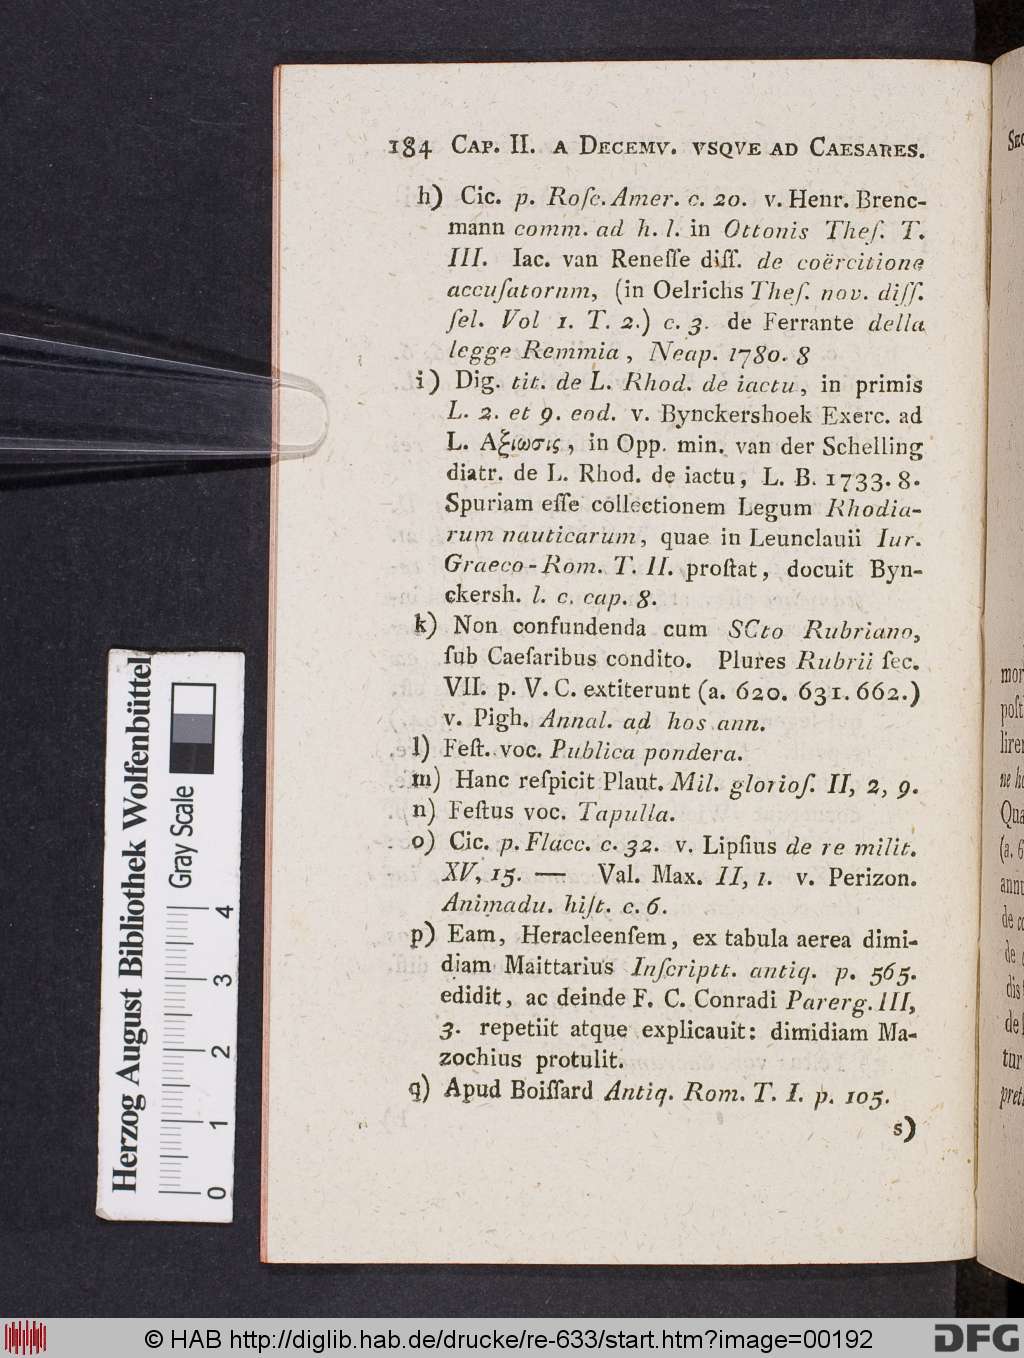 184 Cap. II. a Decemv. vsqve ad Caesares.
h) Cic. p. Roſc. Amer. c. 20. v. Henr. Brenc-
mann comm. ad h. l. in Ottonis Theſ. T.
III. Iac. van Reneſſe diſſ. de coërcitione
accuſatornm, (in Oelrichs Theſ. nov. diſſ.
ſel. Vol 1. T. 2.) c. 3. de Ferrante della
legge Remmia, Neap. 1780. 8
i) Dig. tit. de L. Rhod. de iactu, in primis
L. 2. et 9. eod. v. Bynckershoek Exerc. ad
L. Αξιωσις, in Opp. min. van der Schelling
diatr. de L. Rhod. de iactu, L. B. 1733. 8.
Spuriam eſſe collectionem Legum Rhodia-
rum nauticarum, quae in Leunclauii Iur.
Graeco-Rom. T. II. proſtat, docuit Byn-
ckersh. l. c. cap. 8.
k) Non confundenda cum SCto Rubriano,
ſub Caeſaribus condito. Plures Rubrii ſec.
VII. p. V. C. extiterunt (a. 620. 631. 662.)
v. Pigh. Annal. ad hos ann.
l) Feſt. voc. Publica pondera.
m) Hanc reſpicit Plaut. Mil. glorioſ. II, 2, 9.
n) Feſtus voc. Tapulla.
o) Cic. p. Flacc. c. 32. v. Lipſius de re milit.
XV, 15. — Val. Max. II, 1. v. Perizon.
Animadu. hiſt. c. 6.
p) Eam, Heracleenſem, ex tabula aerea dimi-
diam Maittarius Inſcriptt. antiq. p. 565.
edidit, ac deinde F. C. Conradi Parerg. III,
3. repetiit atque explicauit: dimidiam Ma-
zochius protulit.
q) Apud Boiſſard Antiq. Rom. T. I. p. 105.
s)
Herzog August Bibliothek Wolfenbüttel
Gray Scale
0 1 2 3 4
© HAB http://diglib.hab.de/drucke/re-633/start.htm?image=00192
DFG